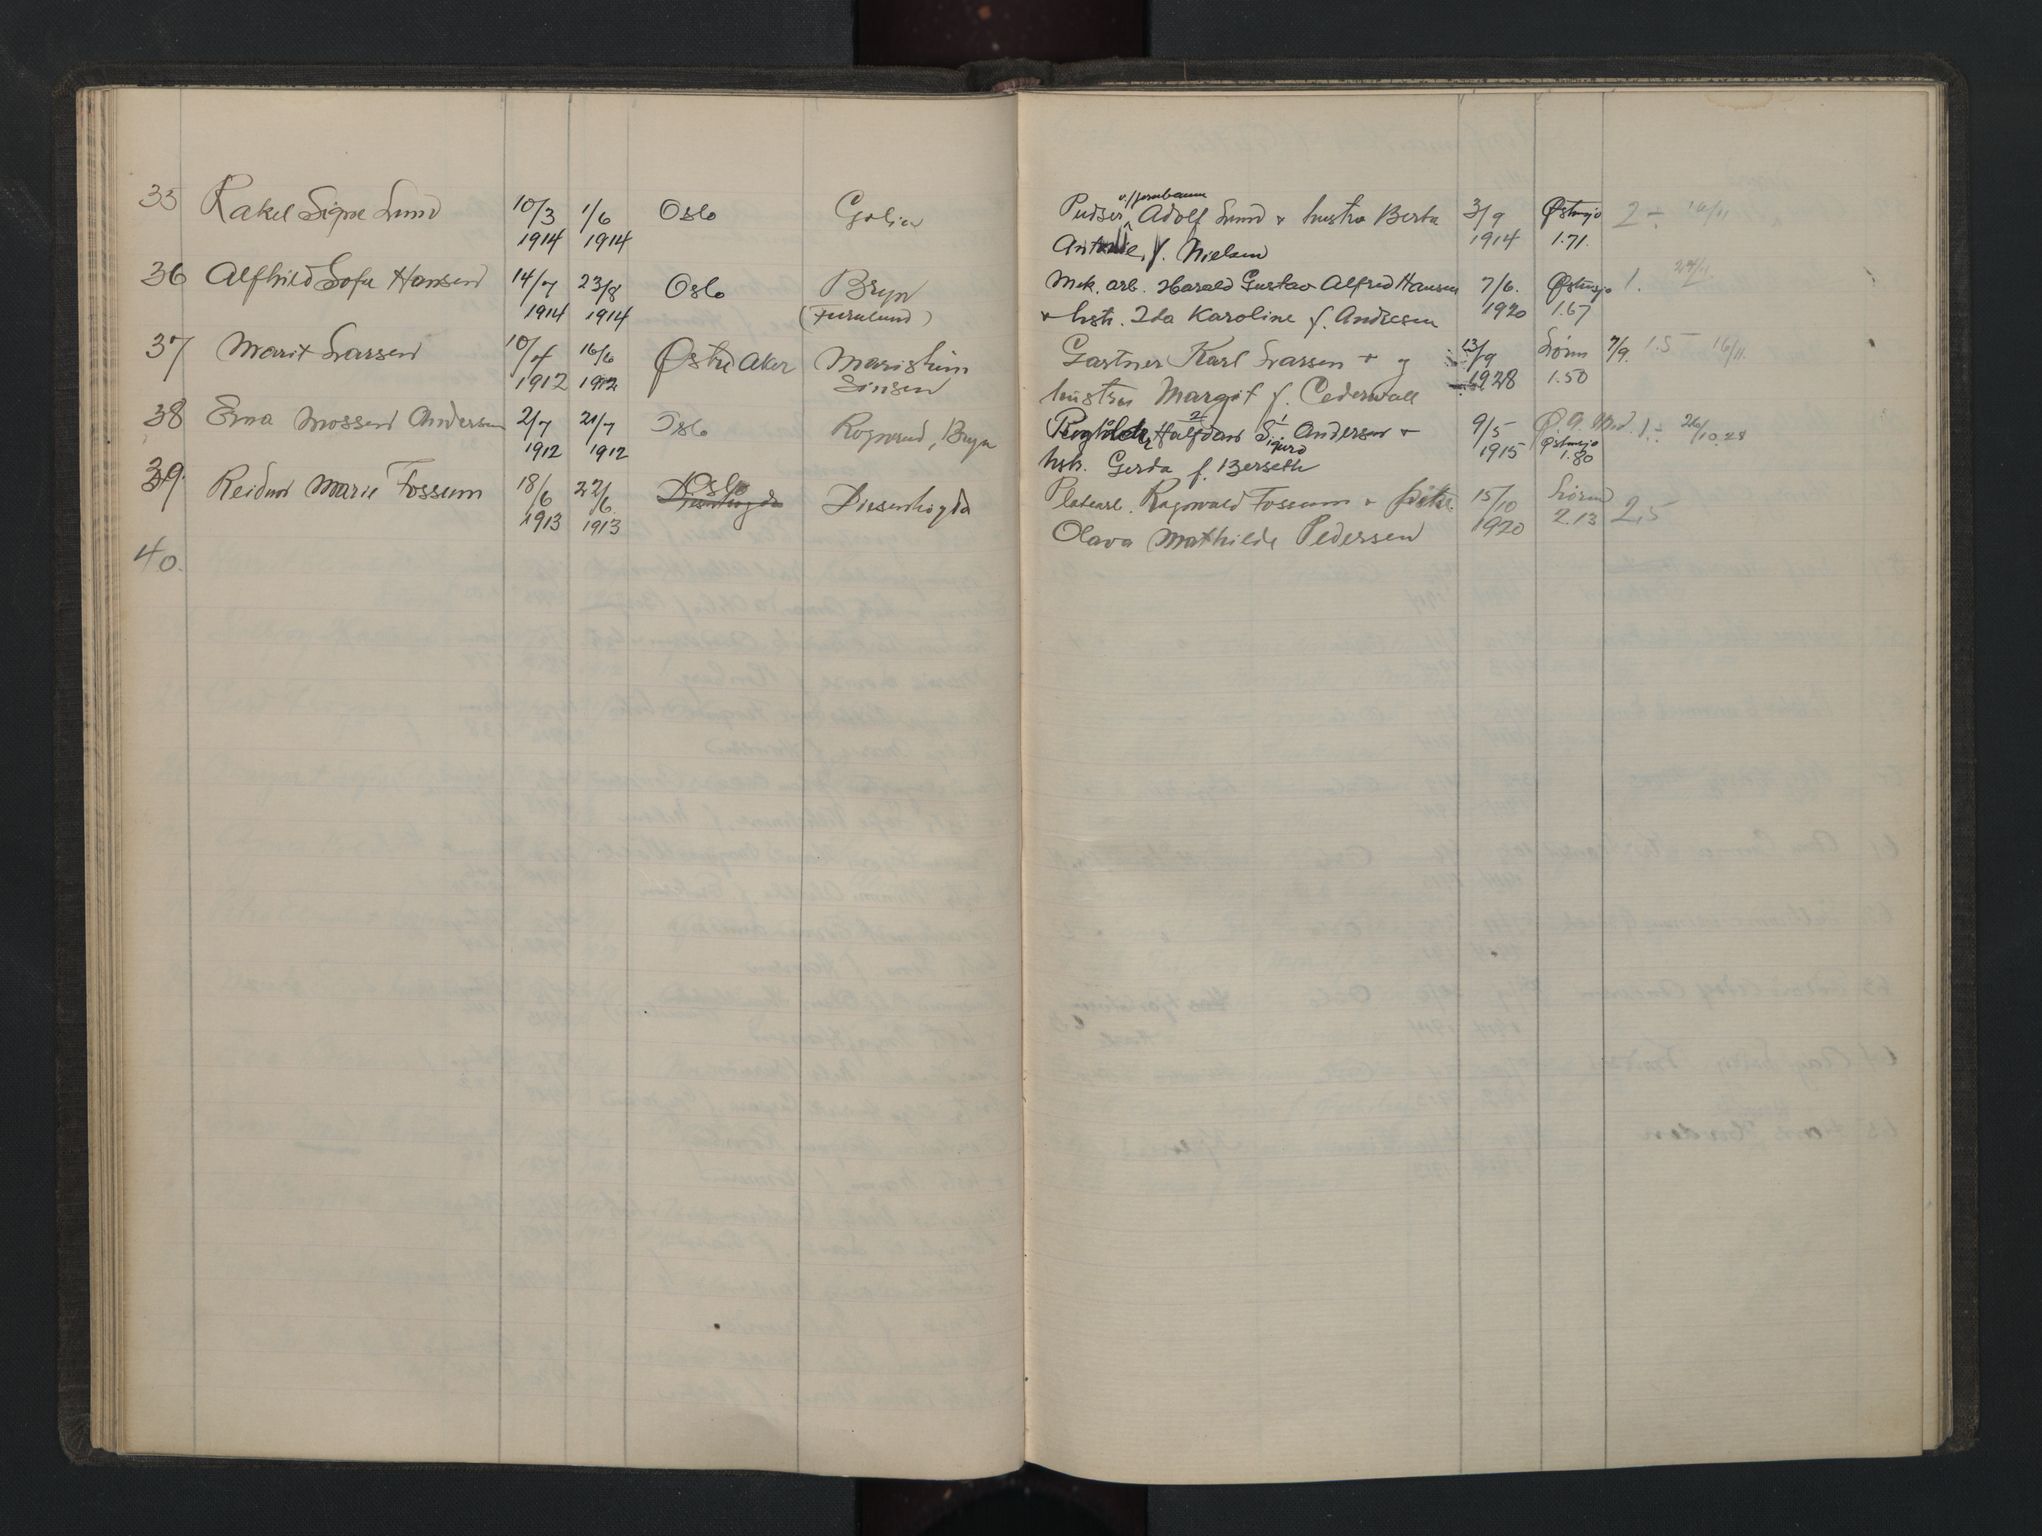 35 Rakel Signe Lund 10/3 1/6 Oslo Golia Pudser v/jernbanen Adolf Lund + hustru Berta 3/9 Østensjø 2 ÷ 16/11
1914 1914 f. Nielsen 1914 1.71.
36 Alfhild Sofie Hansen 14/7 23/8 Oslo Bryn Mek. arb. Harald Gustav Alfred Hansen 7/6. Østensjø 1. 24/11.
1914 1914 (Furulund) + hstr. Ida Karoline f. Andresen 1920 1.67
37 Marit Larsen 10/4 16/6 Østre Aker Marisheim Gartner Karl Larsen + 13/9 Lørin 7/9. 1.5 16/11.
1912 1912 Sinsen hustru Margit f. Cederwall 1928 1.50
38 Erna Mossen Andersen 2/7 21/7 Oslo Rognerud, Bryn Halfdan Sigurd Andersen + 9/5 1 ÷ 26/10.28
1912 1912 hstr. Gerda f. Berseth 1915 Østensjø 1.80
39. Reidun Marie Fossum 18/6 22/6 Oslo Disenhøgda Platearb. Ragnvald Fossum + 15/10 2,5
1913 1913 Olava Mathilde Pedersen 1920 2.13
40.